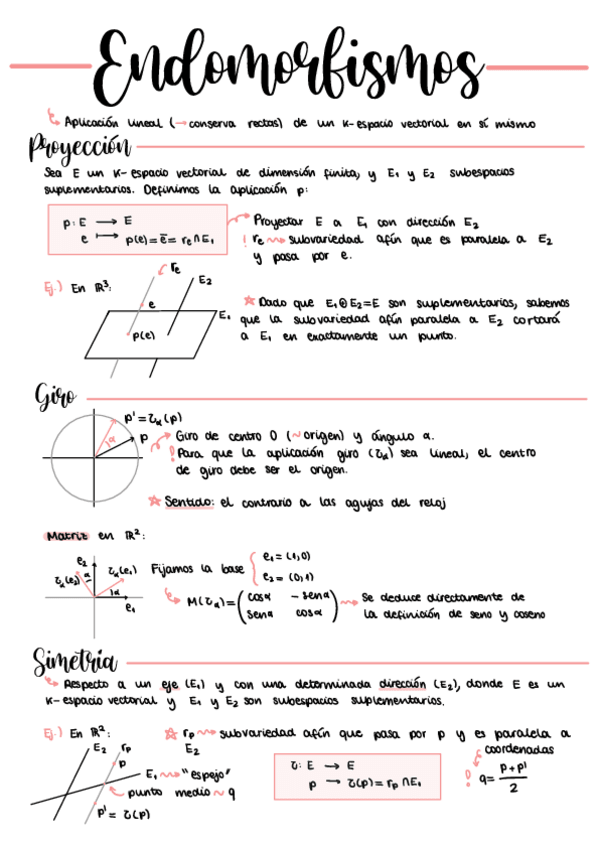 Endomorfismos
Aplicación lineal (→ conserva rectas) de un K-espacio vectorial en sí mismo
Proyección
Sea E un K-espacio vectorial de dimensión finita, y E₁ y E₂ subespacios
suplementarios. Definimos la aplicación p:
p: E → E
e ↦ p(e) = ē = re ∩ E₁
Proyectar E a E₁ con dirección E₂
! re ⇝ subvariedad afín que es paralela a E₂
y pasa por e.
Ej.) En ℝ³:
re
E₂
e
E₁
p(e)
☆ Dado que E₁⊕E₂=E son suplementarios, sabemos
que la subvariedad afín paralela a E₂ cortará
a E₁ en exactamente un punto.
Giro
p' = τα(p)
p
α
Giro de centro O (~ origen) y ángulo α.
! Para que la aplicación giro (τα) sea lineal, el centro
de giro debe ser el origen.
☆ Sentido: el contrario a las agujas del reloj
Matriz en ℝ²:
e₂
τα(e₂)
α
τα(e₁)
α
e₁
Fijamos la base
e₁ = (1,0)
e₂ = (0,1)
M(τα) = ( cosα -senα
senα cosα )
Se deduce directamente de
la definición de seno y coseno
Simetria
Respecto a un eje (E₁) y con una determinada dirección (E₂), donde E es un
K-espacio vectorial y E₁ y E₂ son subespacios suplementarios.
Ej.) En ℝ²:
☆ rp ⇝ subvariedad afín que pasa por p y es paralela a
E₂
E₂
rp
p
E₁ ⇝ "espejo"
punto medio ~ q
p' = τ(p)
τ: E → E
p → τ(p) = rp ∩ E₁
coordenadas
! q = p + p'
2